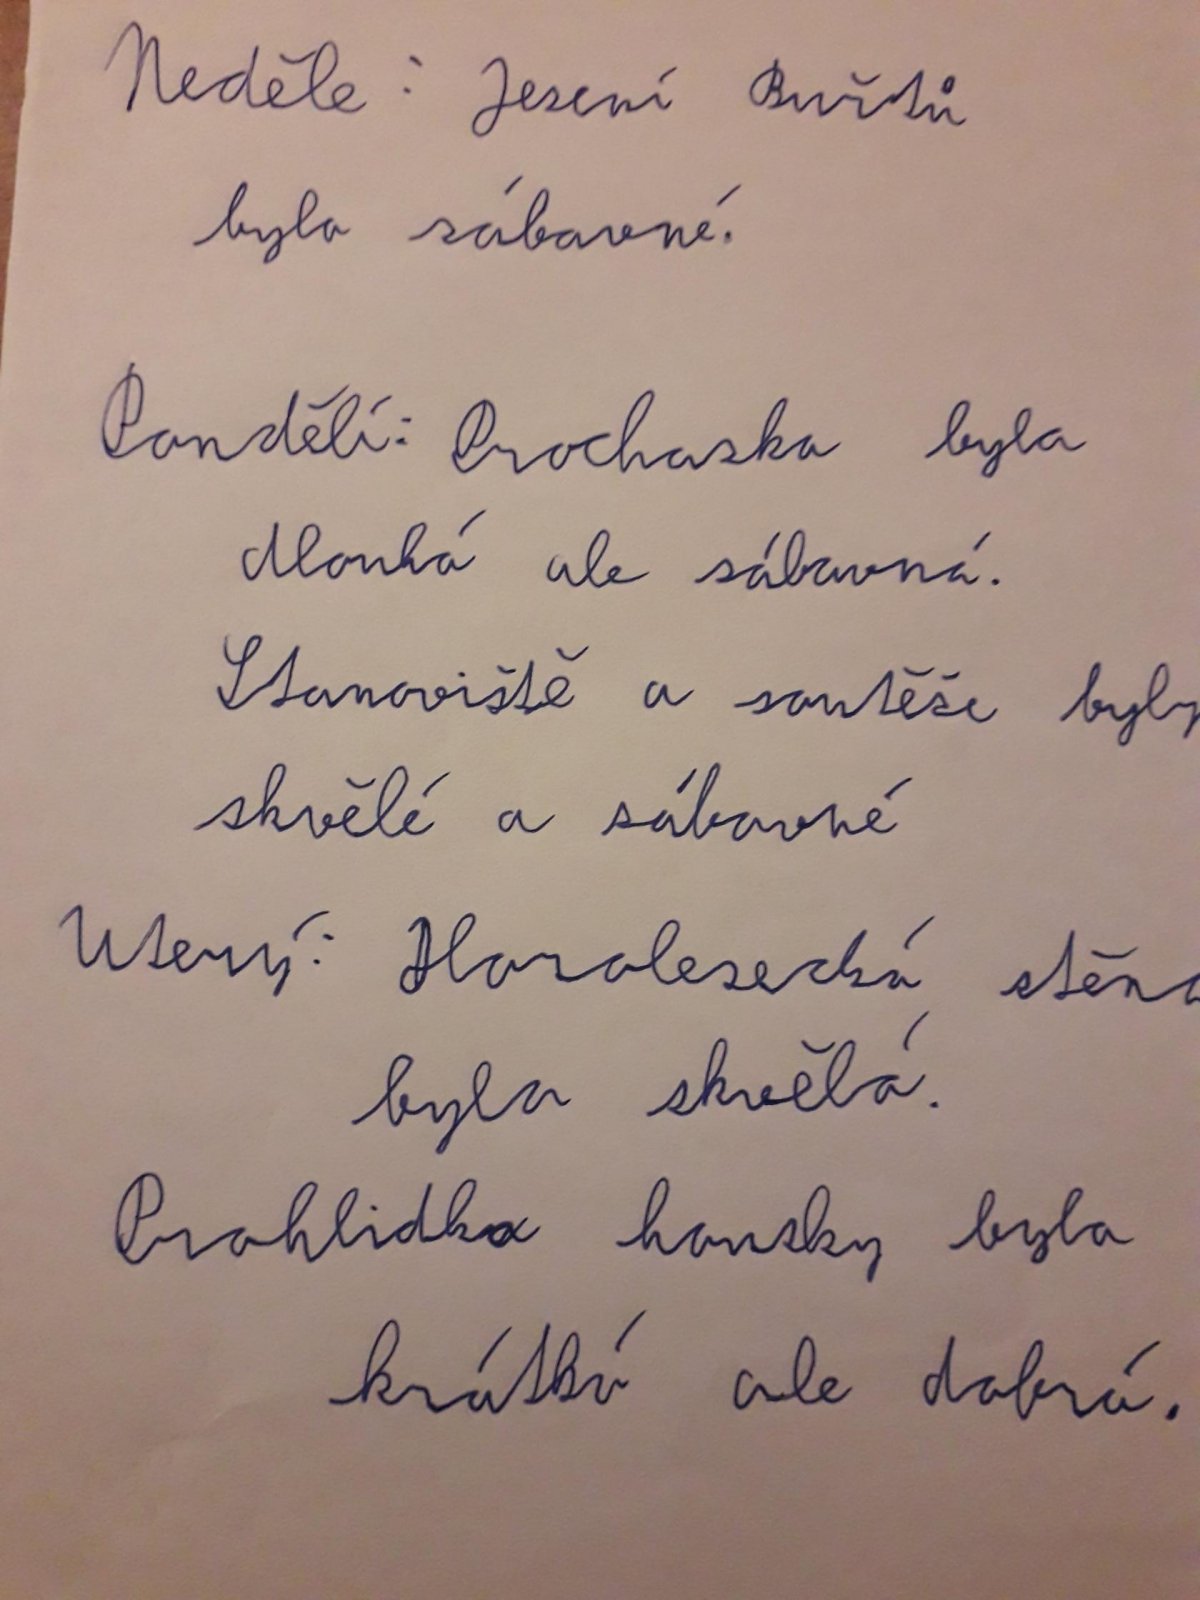 Neděle: Jezení Buřtů
bylo zábavné.
Pondělí: Prochazka byla
dlouhá ale zábavná.
Stanoviště a soutěže byly
skvělé a zábavné
Uterý: Horolezecká stěna
byla skvělá.
Prohlidka housky byla
krátká ale dobrá.